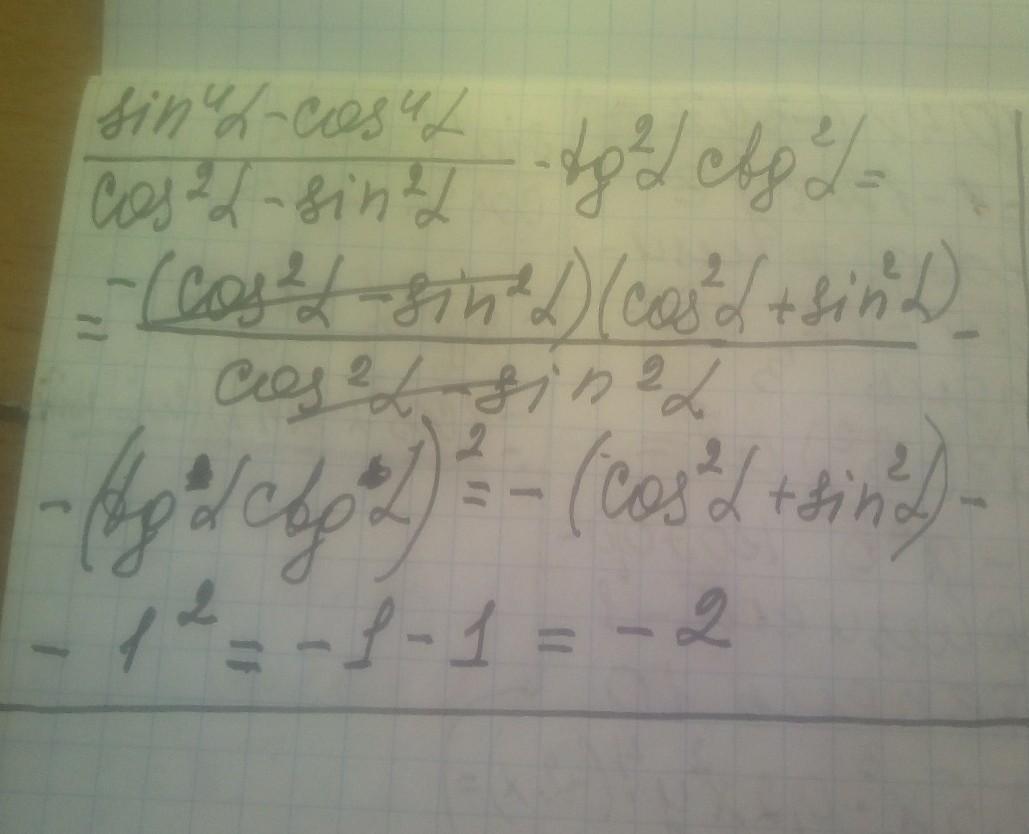 sin⁴α - cos⁴α
cos²α - sin²α
- tg²α ctg²α =
= -(cos²α - sin²α)(cos²α + sin²α) -
cos²α - sin²α
- (tg α ctg α)² = - (cos²α + sin²α) -
- 1² = - 1 - 1 = - 2